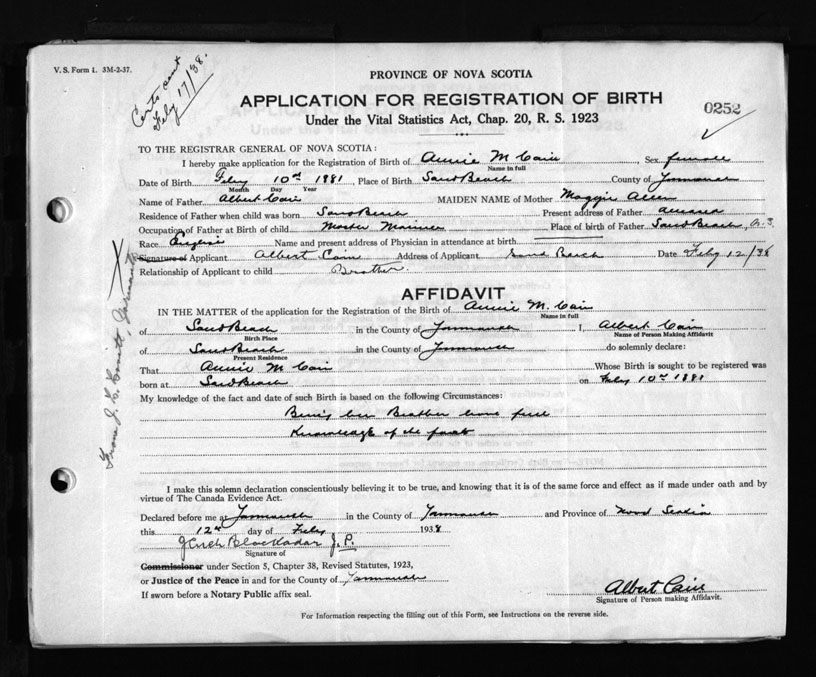 V. S. Form 1. 3M-2-37.
Certs sent
Feby 17/38.
PROVINCE OF NOVA SCOTIA
APPLICATION FOR REGISTRATION OF BIRTH
0252
Under the Vital Statistics Act, Chap. 20, R. S. 1923
TO THE REGISTRAR GENERAL OF NOVA SCOTIA:
I hereby make application for the Registration of Birth of Annie M Cain, Sex female
Name in full
Date of Birth Feby 10th 1881, Place of Birth Sand Beach County of Yarmouth
Month Day Year
Name of Father Albert Cain MAIDEN NAME of Mother Maggie Allen
Residence of Father when child was born Sand Beach Present address of Father
Occupation of Father at Birth of child Master Mariner Place of birth of Father Sand Beach, N.S.
Race English Name and present address of Physician in attendance at birth
Signature of Applicant Albert Cain Address of Applicant Sand Beach Date Feby 12/38
Relationship of Applicant to child Brother
From J. C. Yarmouth
AFFIDAVIT
IN THE MATTER of the application for the Registration of the Birth of Annie M. Cain
Name in full
of Sand Beach in the County of Yarmouth I, Albert Cain
Birth Place Name of Person Making Affidavit
of Sand Beach in the County of Yarmouth do solemnly declare:
Present Residence
That Annie M Cain Whose Birth is sought to be registered was
born at Sand Beach on Feby 10th 1881
My knowledge of the fact and date of such Birth is based on the following Circumstances:
Being her Brother have full
Knowledge of the facts
I make this solemn declaration conscientiously believing it to be true, and knowing that it is of the same force and effect as if made under oath and by
virtue of The Canada Evidence Act.
Declared before me at Yarmouth in the County of Yarmouth and Province of Nova Scotia
this 12th day of Feby 1938
Blackadar J. P.
Signature of
Commissioner under Section 5, Chapter 38, Revised Statutes, 1923,
or Justice of the Peace in and for the County of Yarmouth
If sworn before a Notary Public affix seal.
Albert Cain
Signature of Person making Affidavit.
For Information respecting the filling out of this Form, see Instructions on the reverse side.